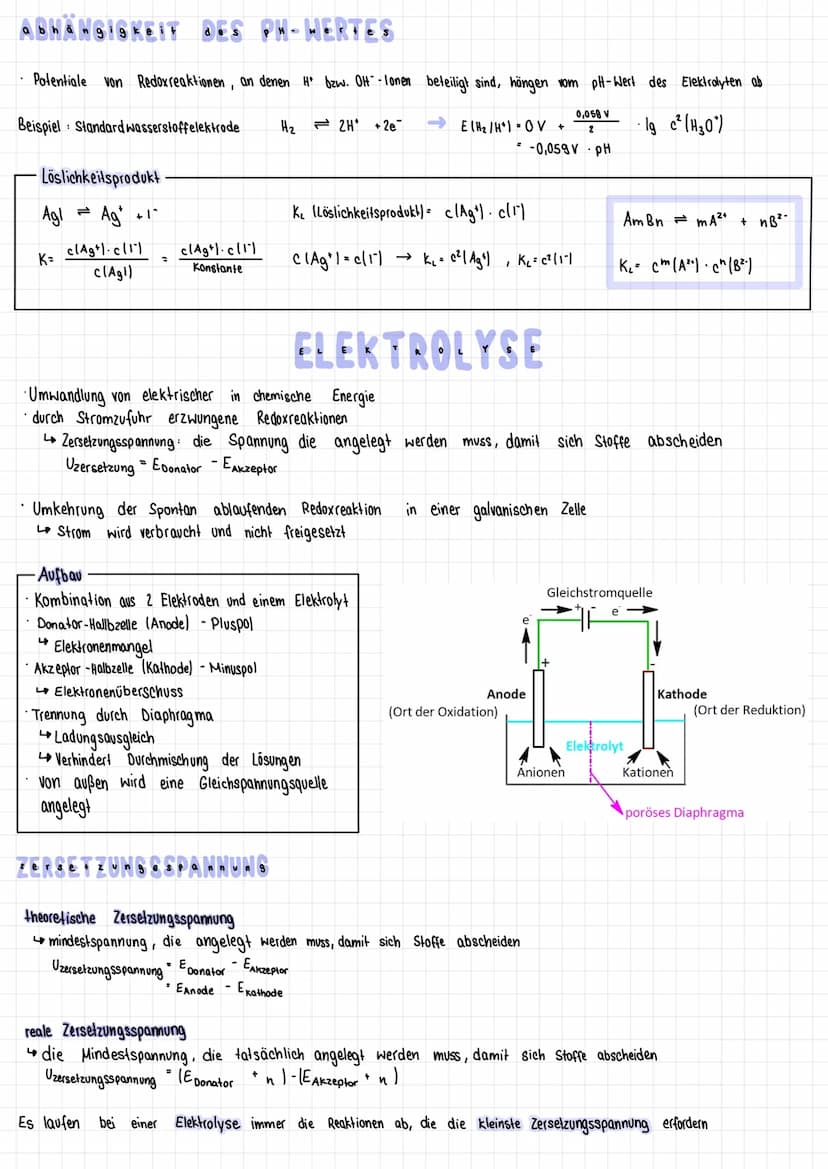 ABHÄNGIGKEIT DES PH-WERTES
· Potentiale von Redoxreaktionen, an denen H⁺ bzw. OH⁻-Ionen beteiligt sind, hängen vom pH-Wert des Elektrolyten ab
Beispiel: Standardwasserstoffelektrode H₂ ⇌ 2H⁺ + 2e⁻ → E(H₂/H⁺) = 0V + 0,059V/2 · lg c²(H₃O⁺)
= -0,059V · pH
Löslichkeitsprodukt
AgI ⇌ Ag⁺ + I⁻
K = c(Ag⁺)·c(I⁻)/c(AgI) = c(Ag⁺)·c(I⁻)/Konstante
K_L (Löslichkeitsprodukt) = c(Ag⁺) · c(I⁻)
c(Ag⁺) = c(I⁻) → K_L = c²(Ag⁺), K_L = c²(I⁻)
AmBn ⇌ mA²⁺ + nB²⁻
K_L = c^m(A²⁺) · c^n(B²⁻)
ELEKTROLYSE
· Umwandlung von elektrischer in chemische Energie
· durch Stromzufuhr erzwungene Redoxreaktionen
↳ Zersetzungsspannung: die Spannung die angelegt werden muss, damit sich Stoffe abscheiden
U_Zersetzung = E_Donator - E_Akzeptor
· Umkehrung der Spontan ablaufenden Redoxreaktion in einer galvanischen Zelle
↳ Strom wird verbraucht und nicht freigesetzt
Aufbau
· Kombination aus 2 Elektroden und einem Elektrolyt
· Donator-Halbzelle (Anode) - Pluspol
↳ Elektronenmangel
· Akzeptor-Halbzelle (Kathode) - Minuspol
↳ Elektronenüberschuss
· Trennung durch Diaphragma
↳ Ladungsausgleich
↳ Verhindert Durchmischung der Lösungen
· von außen wird eine Gleichspannungsquelle
angelegt
Gleichstromquelle
e⁻ + - e⁻
+ -
Anode Kathode
(Ort der Oxidation) (Ort der Reduktion)
Elektrolyt
Anionen Kationen
poröses Diaphragma
ZERSETZUNGSSPANNUNG
theoretische Zersetzungsspannung
↳ mindestspannung, die angelegt werden muss, damit sich Stoffe abscheiden
U_Zersetzungsspannung = E_Donator - E_Akzeptor
= E_Anode - E_Kathode
reale Zersetzungsspannung
↳ die Mindestspannung, die tatsächlich angelegt werden muss, damit sich Stoffe abscheiden
U_Zersetzungsspannung = (E_Donator + n) - (E_Akzeptor + n)
Es laufen bei einer Elektrolyse immer die Reaktionen ab, die die kleinste Zersetzungsspannung erfordern